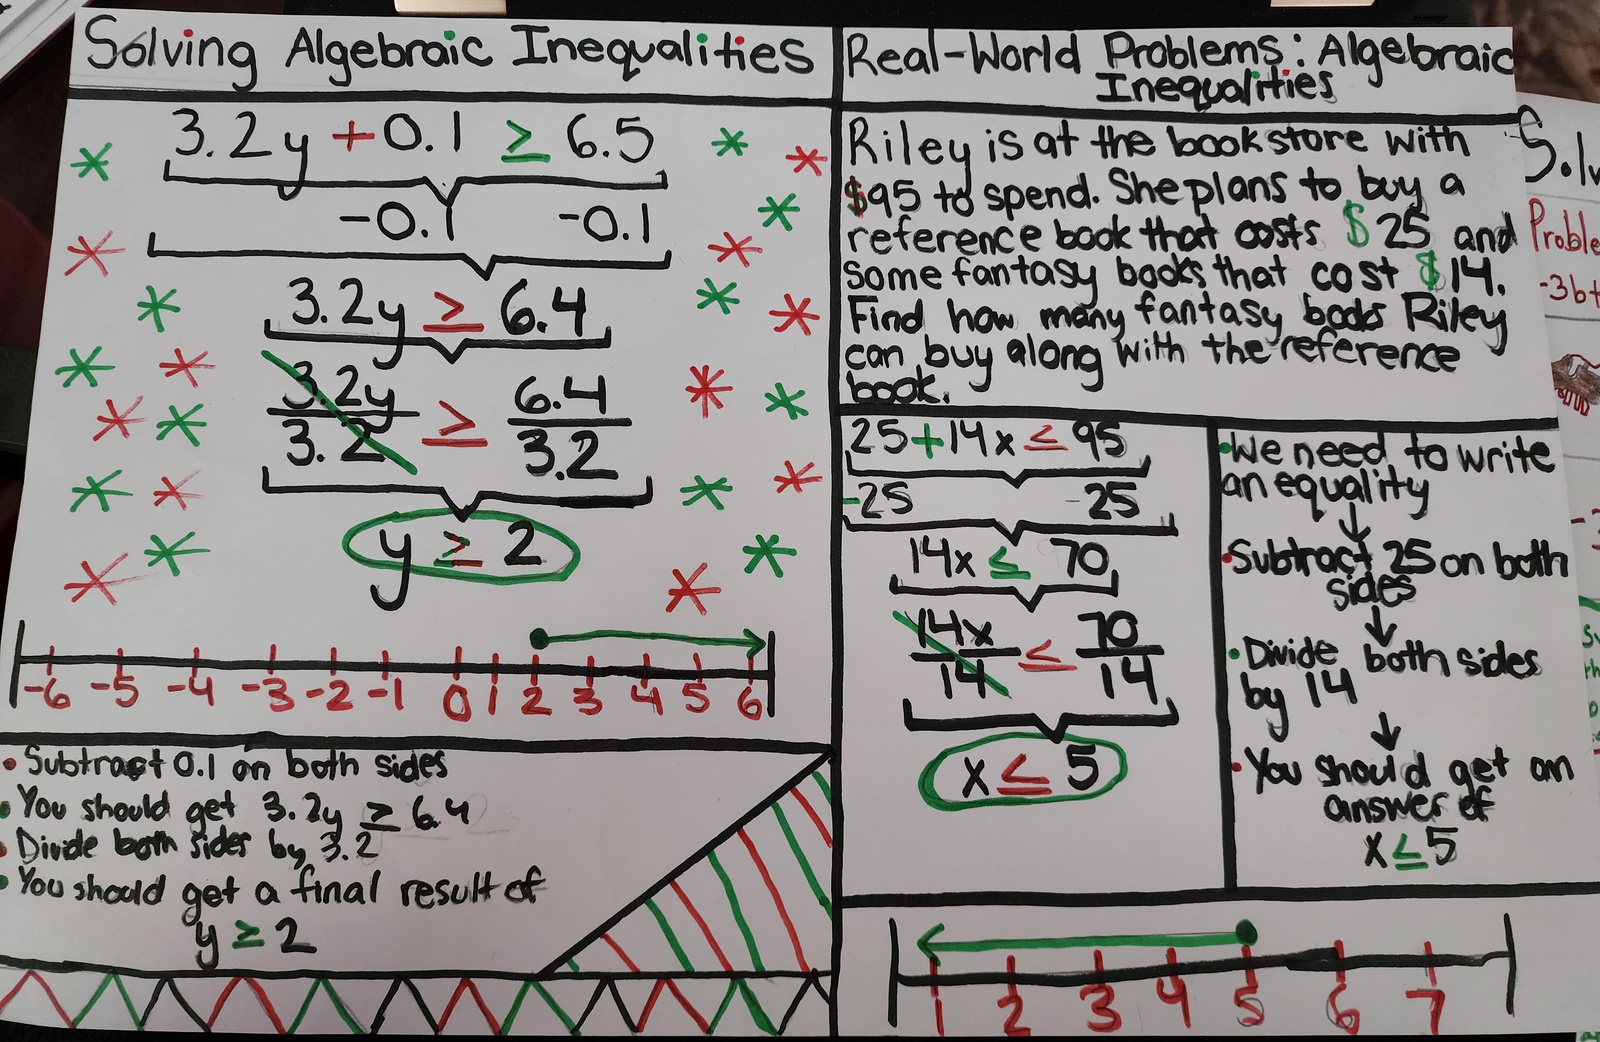 Solving Algebraic Inequalities
3.2y + 0.1 ≥ 6.5
-0.1 -0.1
3.2y ≥ 6.4
3.2y ≥ 6.4
3.2 3.2
y ≥ 2
-6 -5 -4 -3 -2 -1 0 1 2 3 4 5 6
• Subtract 0.1 on both sides
• You should get 3.2y ≥ 6.4
• Divide both sides by 3.2
• You should get a final result of
y ≥ 2
Real-World Problems: Algebraic
Inequalities
Riley is at the book store with
$95 to spend. She plans to buy a
reference book that costs $25 and
some fantasy books that cost $14.
Find how many fantasy books Riley
can buy along with the reference
book.
25+14x ≤ 95
-25 -25
14x ≤ 70
14x ≤ 70
14 14
x ≤ 5
• We need to write
an equality
↓
• Subtract 25 on both
sides
↓
• Divide both sides
by 14
↓
• You should get an
answer of
x ≤ 5
1 2 3 4 5 6 7
Proble
-3b+